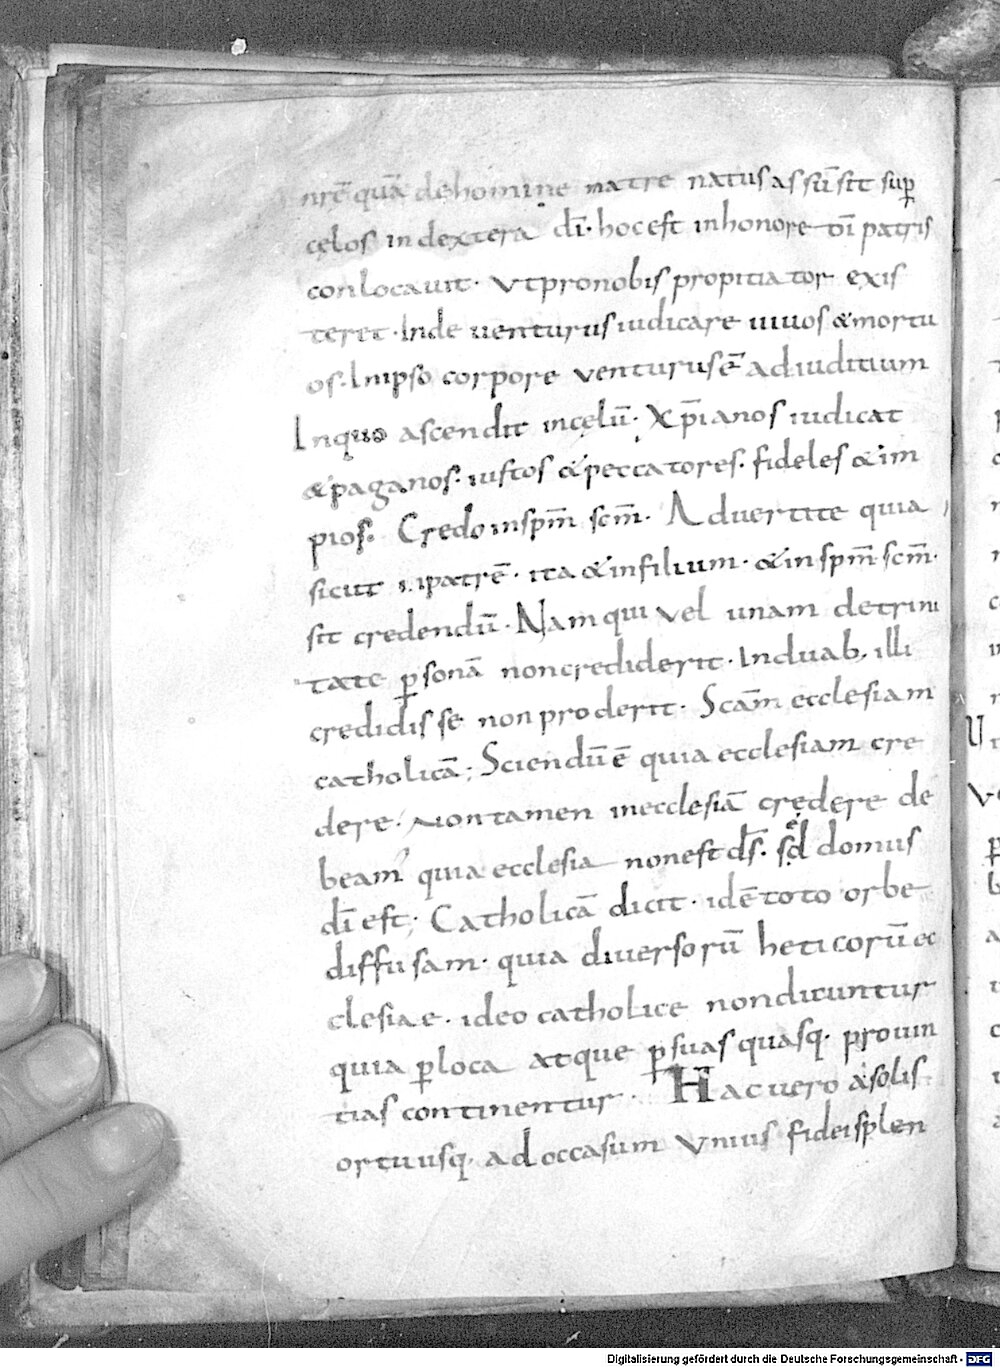 nrē quā dehomine matre natus assūsit sup̄
cęlos indextera dī· hocest inhonore dī patris
conlocauit· Vtpronobis propitiator exis
teret· Inde uenturus iudicare uiuos &mortu
os· Inipso corpore venturus ē adiuditium
Inquo ascendit incęlū· Xp̄ianos iudicat
&paganos· iustos &peccatores· fideles &im
pios· Credo inspm̄ scm̄· Aduertite quia
sicut inpatrē· ita &infilium· &inspm̄ scm̄·
sit credendū· Nam qui vel unam detrini
tate p̄sonā noncrediderit· Induab, illi
credidisse non proderit· Scām ecclesiam
catholicā; Sciendū ē quia ecclesiam cre
dere· Nontamen inecclesiā crędere de
beam' quia ecclesia nonest ds̄· sed domus
dī est; Catholicā dicit· idē toto orbe
diffusam· quia diuersorū heticorū ec
clesiae· ideo catholice nondicuntur
quia p̄loca atque p̄suas quasq· prouin
tias continentur· Hac uero asolis
ortuusq· adoccasum Vnius fidei splen
Digitalisierung gefördert durch die Deutsche Forschungsgemeinschaft - DFG